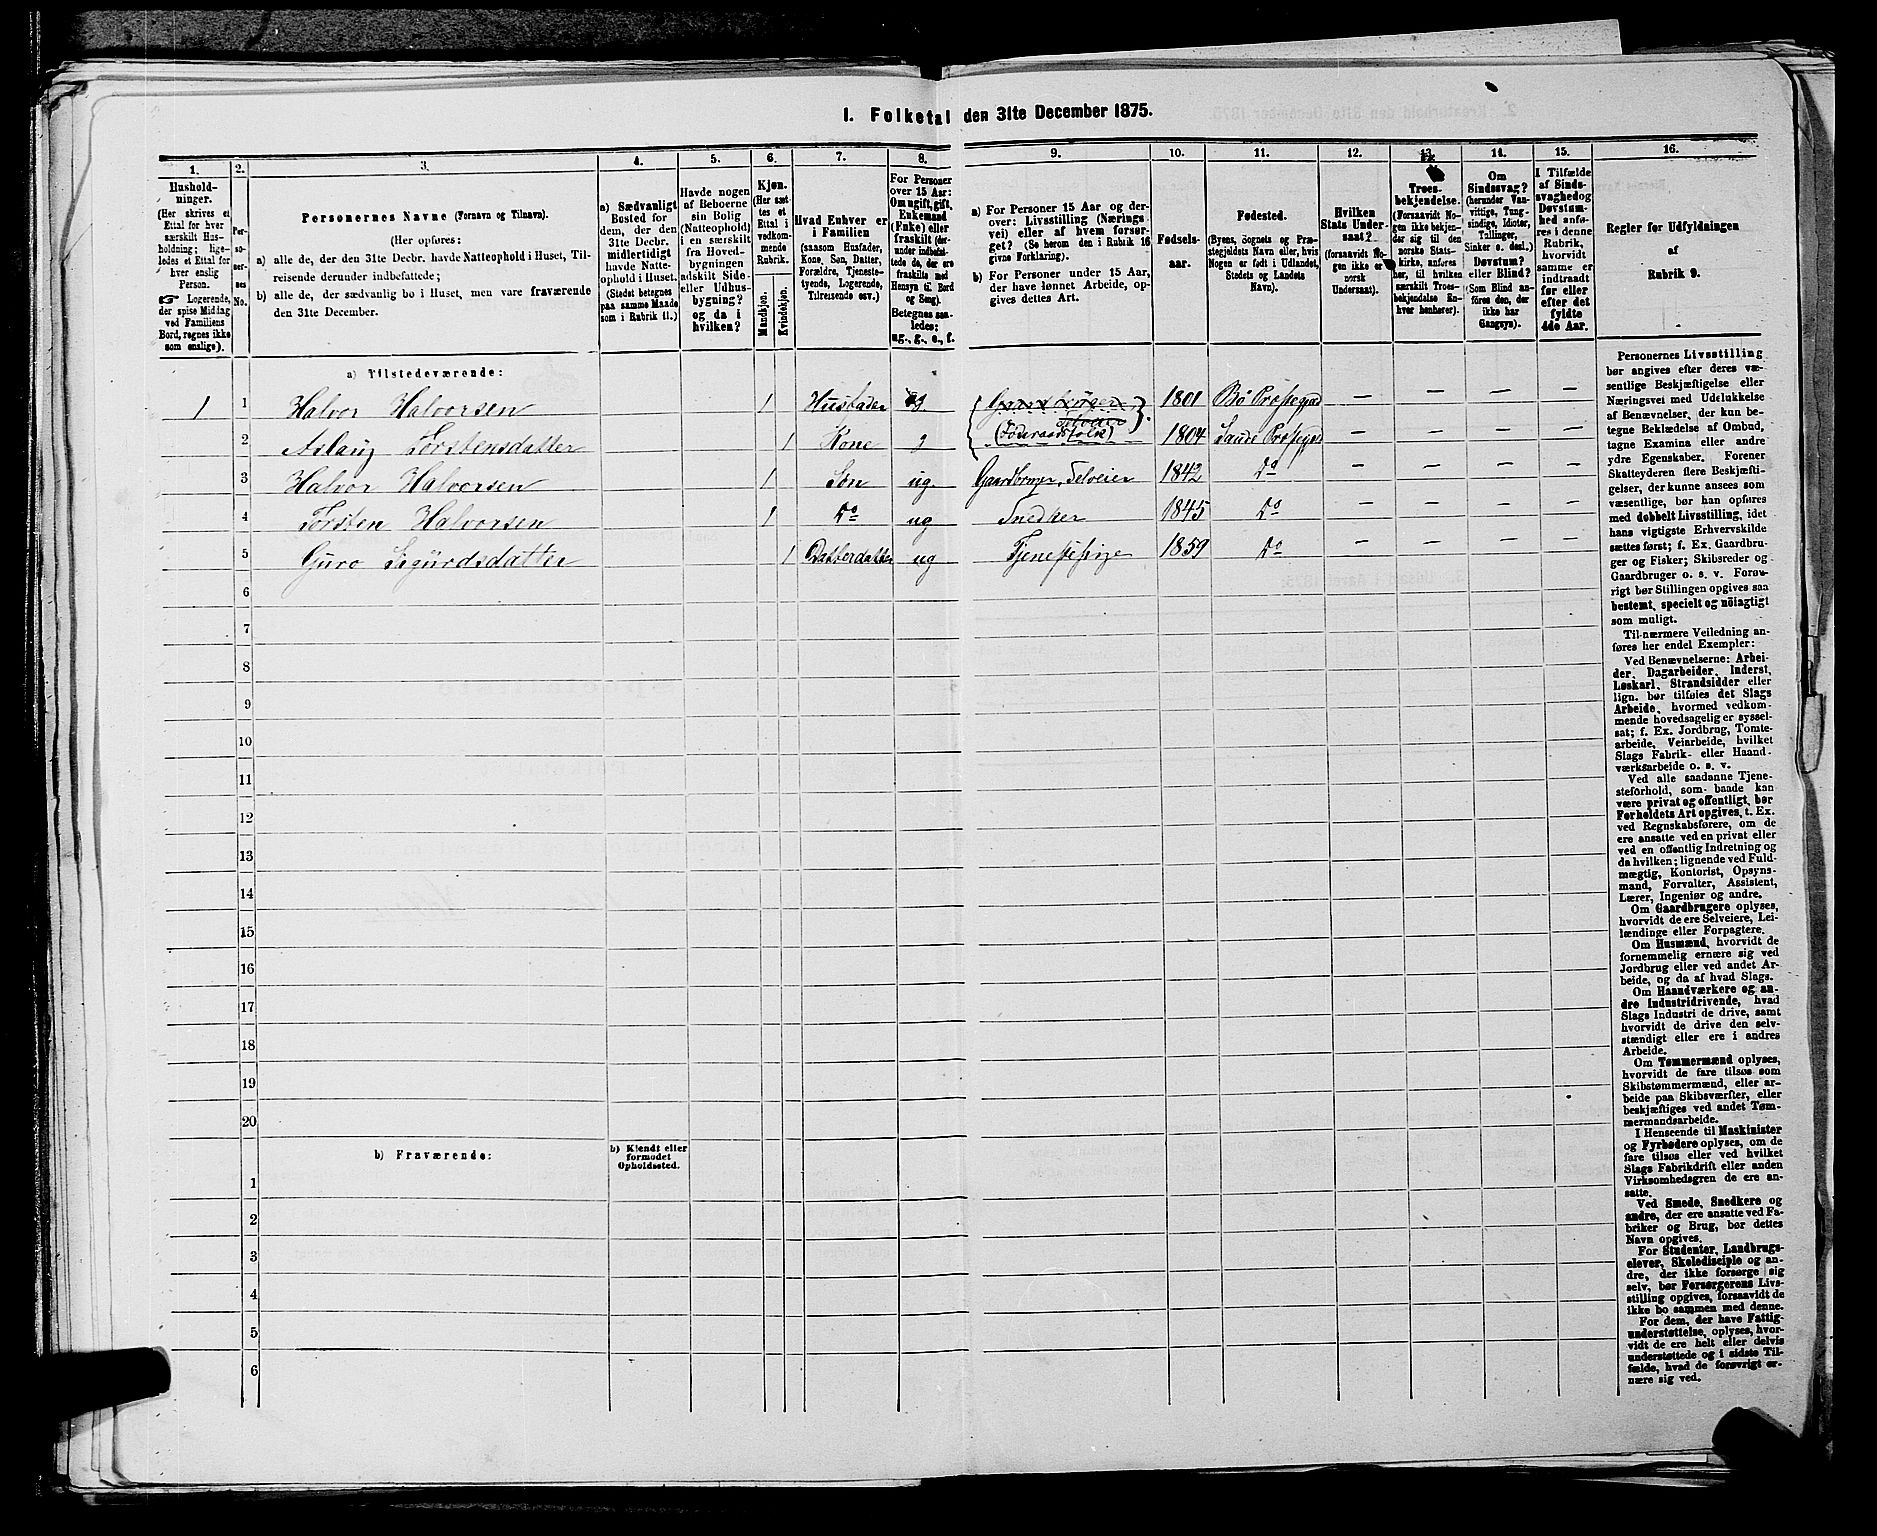 1. Folketal den 31te December 1875.
1. 2. 3. 4. 5. 6. 7. 8. 9. 10. 11. 12. 13. 14. 15. 16.
Hushold-
ninger.
(Her skrives et
Ettal for hver
særskilt Hus-
holdning; lige-
ledes et Ettal for
hver enslig
Person.
☞ Logerende,
der spise Middag
ved Familiens
Bord, regnes ikke
som enslige).
Per-
so-
ner-
nes
No.
Personernes Navne (Fornavn og Tilnavn).
(Her opføres:
a) alle de, der den 31te Decbr. havde Natteophold i Huset, Til-
reisende derunder indbefattede;
b) alle de, der sædvanlig bo i Huset, men vare fraværende
den 31te December.
a) Sædvanligt
Bosted for
dem, der den
31te Decbr.
midlertidigt
havde Natte-
ophold i Huset.
(Stedet betegnes
paa samme Maade
som i Rubrik 11.)
Havde nogen
af Beboerne
sin Bolig
(Natteophold)
i en særskilt
fra Hoved-
bygningen
adskilt Side-
eller Udhus-
bygning?
og da i
hvilken?
Kjøn.
(Her sæt-
tes et
Ettal i
vedkom-
mende
Rubrik.
Mandkjøn.
Kvindekjøn.
Hvad Enhver er
i Familien
(saasom Husfader,
Kone, Søn, Datter,
Forældre, Tjeneste-
tyende, Logerende,
Tilreisende osv.)
For Personer
over 15 Aar:
Om ugift, gift,
Enkemand
(Enke) eller
fraskilt (der-
under indbefat-
tede de, der ere
fraskilte med
Hensyn til Bord
og Seng).
Betegnes saa-
ledes:
ug., g., e., f.
a) For Personer 15 Aar og der-
over: Livsstilling (Nærings-
vei) eller af hvem forsør-
get? (Se herom den i Rubrik 16
givne Forklaring).
b) For Personer under 15 Aar,
der have lønnet Arbeide, op-
gives dettes Art.
Fødsels-
aar.
Fødested.
(Byens, Sognets og Præ-
stegjeldets Navn eller, hvis
Nogen er født i Udlandet,
Stedets og Landets
Navn).
Hvilken
Stats Under-
saat?
(forsaavidt No-
gen ikke er
norsk
Undersaat).
Troes-
bekjendelse.
(Forsaavidt No-
gen ikke bekjen-
der sig til den
norske Stats-
kirke, anføres
her, til hvilken
særskilt Troes-
bekjendelse En-
hver henhører).
Om
Sindssvag?
(herunder Van-
vittige, Tung-
sindige, Idioter,
Tullinger,
Sinker o. desl.).
Døvstum?
eller Blind?
(Som Blind an-
føres den, der
ikke har
Gangsyn).
I Tilfælde
af Sinds-
svaghed og
Døvstum-
hed anfø-
res i denne
Rubrik,
hvorvidt
samme er
indtraadt
før eller
efter det
fyldte
4de Aar.
Regler for Udfyldningen
af
Rubrik 9.
a) Tilstedeværende:
1 1 Halvor Halvorsen 1 Husfader g Gaardbruger, Selveier 1801 Bø Præstegjæld — — — —
2 Aslaug Torstensdatter 1 Kone g (Føderaadsfolk) 1804 Saude Præstegjæld — — — —
3 Halvor Halvorsen 1 Søn ug Gaardbruger, Selveier 1842 Do — — — —
4 Torsten Halvorsen 1 Do ug Snedker 1845 Do — — — —
5 Guro Sigurdsdatter 1 Datterdatter ug Tjenestepige 1859 Do — — — —
6
7
8
9
10
11
12
13
14
15
16
17
18
19
20
b) Fraværende:
b) Kjendt eller
formodet
Opholdssted.
1
2
3
4
5
6
Personernes Livsstilling
bør angives efter deres væ-
sentlige Beskjæftigelse eller
Næringsvei med Udelukkelse
af Benævnelser, der kun be-
tegne Beklædelse af Ombud,
tagne Examina eller andre
ydre Egenskaber. Forener
Skatteyderen flere Beskjæfti-
gelser, der kunne ansees som
væsentlige, bør han opføres
med dobbelt Livsstilling, idet
hans vigtigste Erhvervskilde
sættes først; f. Ex. Gaardbru-
ger og Fisker; Skibsreder og
Gaardbruger o. s. v. Forøv-
rigt bør Stillingen opgives saa
bestemt, specielt og nöiagtigt
som muligt.
Til nærmere Veiledning an-
føres her endel Exempler:
Ved Benævnelserne: Arbei-
der, Dagarbeider, Inderst,
Løskarl, Strandsidder eller
lign. bør tilføies det Slags
Arbeide, hvormed vedkom-
mende hovedsagelig er syssel-
sat; f. Ex. Jordbrug, Tomte-
arbeide, Veiarbeide, hvilket
Slags Fabrik- eller Haand-
værksarbeide o. s. v.
Ved alle saadanne Tjene-
steforhold, som baade kan
være privat og offentligt, bør
Forholdets Art opgives, t. Ex.
ved Regnskabsførere, om de
ere ansatte ved en privat eller
ved en offentlig Indretning og
da hvilken; lignende ved Fuld-
mægtig, Kontorist, Opsyns-
mand, Forvalter, Assistent,
Lærer, Ingeniør og andre.
Om Gaardbrugere oplyses,
hvorvidt de ere Selveiere, Lei-
lændinge eller Forpagtere.
Om Husmænd, hvorvidt de
fornemmelig ernære sig ved
Jordbrug eller ved andet Ar-
beide, og da af hvad Slags.
Om Haandværkere og an-
dre Industridrivende, hvad
Slags Industri de drive, samt
hvorvidt de drive den selv-
stændigt eller ere i andres
Arbeide.
Om Tømmermænd oplyses,
hvorvidt de fare tilsøs som
Skibstømmermænd, eller ar-
beide paa Skibsværfter, eller
beskjæftiges ved andet Tøm-
mermandsarbeide.
I Henseende til Maskinister
og Fyrbødere oplyses, om de
fare tilsøs eller ved hvilket
Slags Fabrikdrift eller anden
Virksomhedsgren de ere an-
satte.
Ved Smede, Snedkere og
andre, der ere ansatte ved Fa-
briker og Brug, bør dettes
Navn opgives.
For Studenter, Landbrugs-
elever, Skoledisciple og an-
dre, der ikke forsørge sig
selv, bør Forsørgerens Livs-
stilling opgives, forsaavidt de
ikke bo sammen med denne.
For dem, der have Fattig-
understøttelse, oplyses, hvor-
vidt de ere helt eller delvis
understøttede og i sidste Til-
fælde, hvad de forøvrigt er-
nære sig ved.